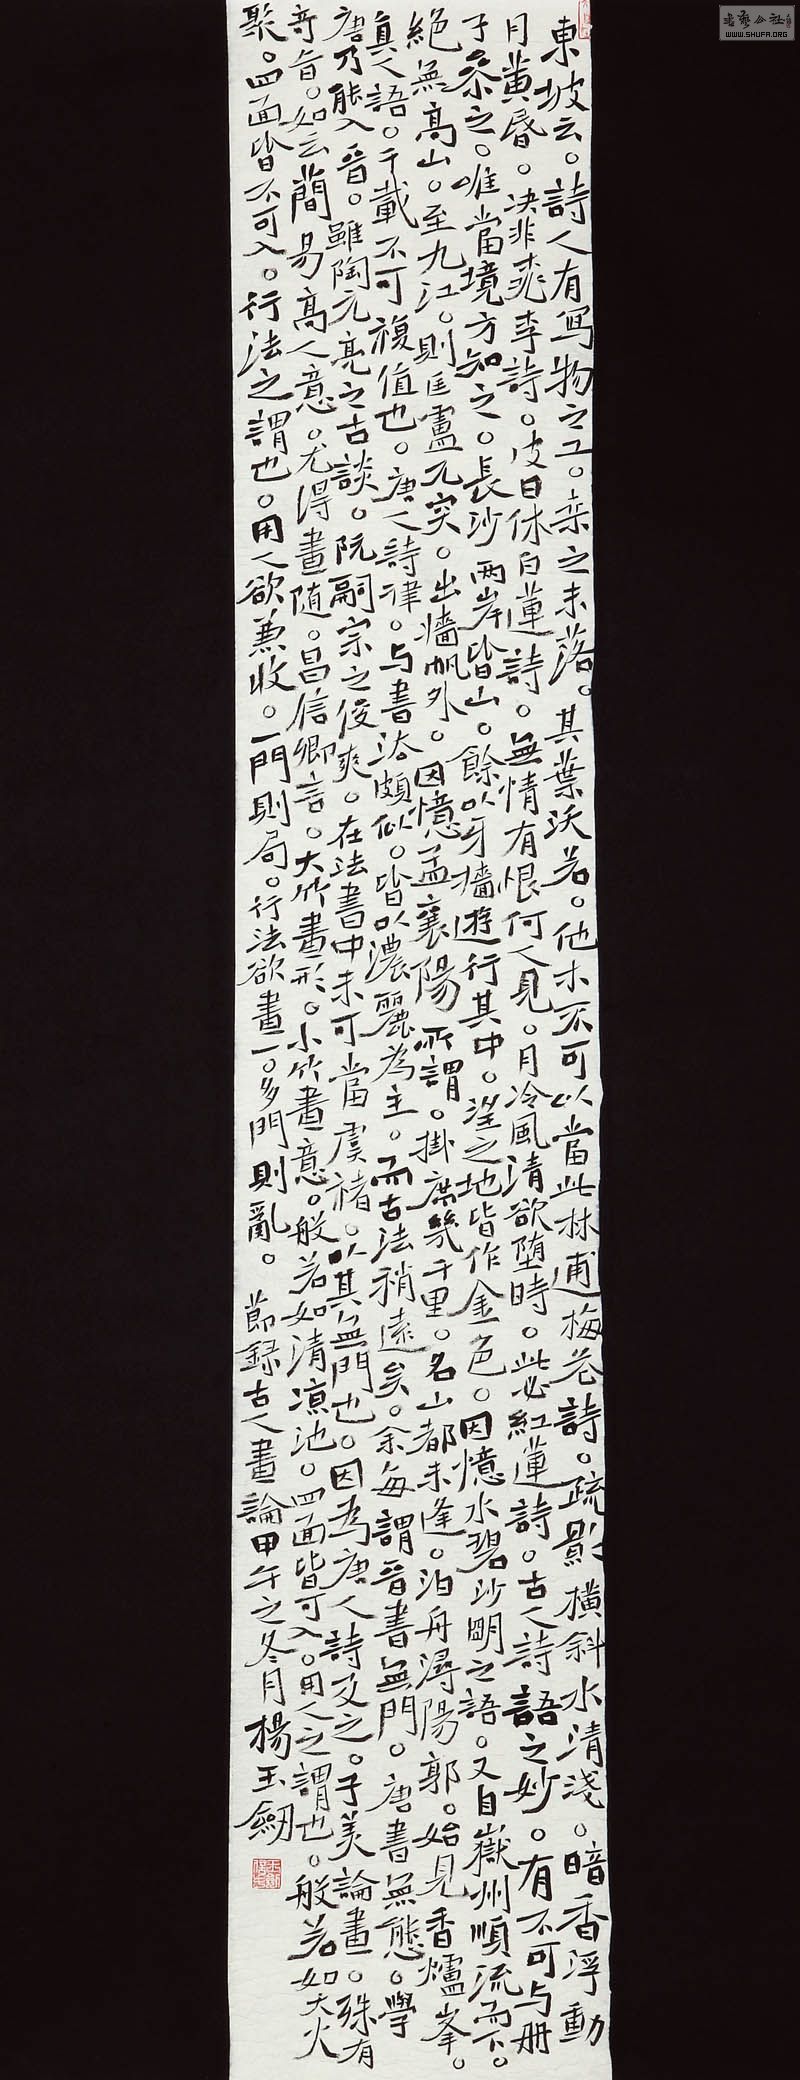 東坡云。詩人有寫物之工。桒之未落。其葉沃若。他木不可以當此林逋梅花詩。疏影橫斜水清淺。暗香浮動
月黃昏。決非桃李詩。皮日休白蓮詩。無情有恨何人見。月冷風清欲墮時。此必紅蓮詩。古人詩語之妙。有不可与册
于參之。唯當境方知之。長沙兩岸皆山。餘以牙檣遊行其中。望之地皆作金色。因憶水碧沙明之語。又自嶽州順流而下。
絕無高山。至九江。則匡盧兀突。出檣帆外。因憶孟襄陽所謂。掛席幾千里。名山都未逢。泊舟潯陽郭。始見香爐峯。
真人語。千載不可複值也。唐人詩律。与書法頗似。皆以濃麗為主。而古法稍遠矣。余每謂晉書無門。唐書無態。學
唐乃能入晉。雖陶元亮之古談。阮嗣宗之俊爽。在法書中未可當虞褚。以其無門也。因為唐人詩及之。子美論畫。殊有
奇旨。如云簡易高人意。尤得畫随。昌信卿言。大竹畫形。小竹畫意。般若如清涼池。四面皆可入。用人之謂也。般若如大火
聚。四面皆不可入。行法之謂也。用人欲兼收。一門則局。行法欲畫一。多門則亂。 節録古人畫論甲午之冬月楊玉劒
書藝公社
WWW.SHUFA.ORG